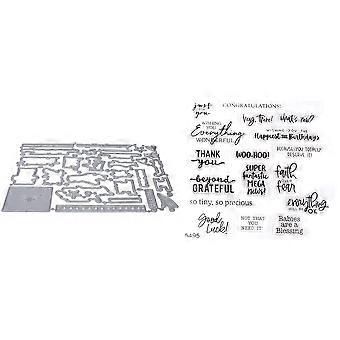 just
you
CONGRATULATIONS!
hey, there! what's new?
WISHING YOU
Everything
WONDERFUL
WISHING YOU THE
Happiest OF Birthdays
THANK
YOU
WOO-HOO!
BECAUSE YOU TOTALLY
DESERVE IT!
beyond
GRATEFUL
SUPER
fantastic
MEGA
NEWS!
faith
fear
so tiny, so precious
everything
WILL BE OK
Good
Luck!
NOT THAT
YOU
NEED IT
Babies
are a
Blessing